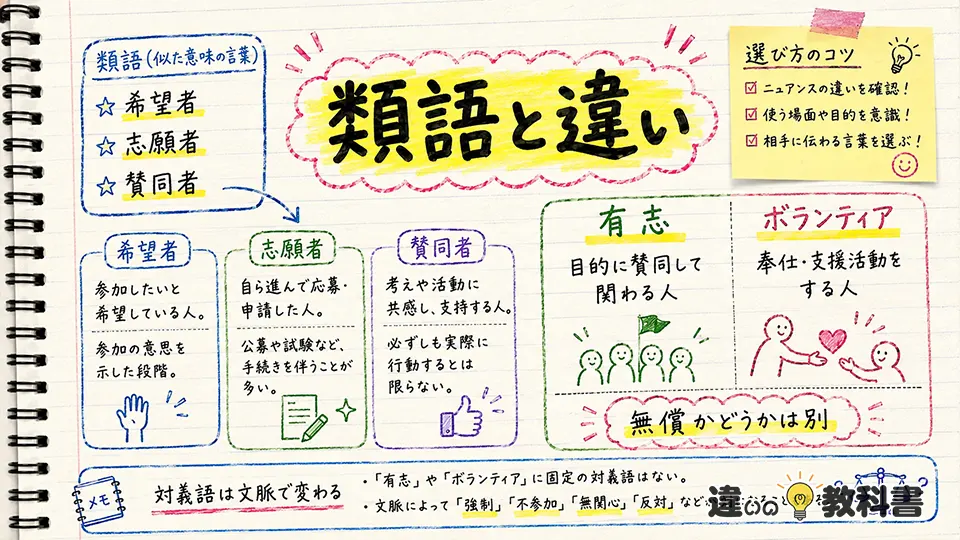 類語(似た意味の言葉)
☆ 希望者
☆ 志願者
☆ 賛同者
類語と違い
選び方のコツ
☑ ニュアンスの違いを確認!
☑ 使う場面や目的を意識!
☑ 相手に伝わる言葉を選ぶ!
希望者
参加したいと
希望している人。
参加の意思を
示した段階。
志願者
自ら進んで応募・
申請した人。
公募や試験など、
手続きを伴うことが
多い。
賛同者
考えや活動に
共感し、支持する人。
必ずしも実際に
行動するとは
限らない。
有志
目的に賛同して
関わる人
ボランティア
奉仕・支援活動を
する人
無償かどうかは別
メモ
対義語は文脈で変わる
・「有志」や「ボランティア」に固定の対義語はない。
・文脈によって「強制」「不参加」「無関心」「反対」など
違いの教科書